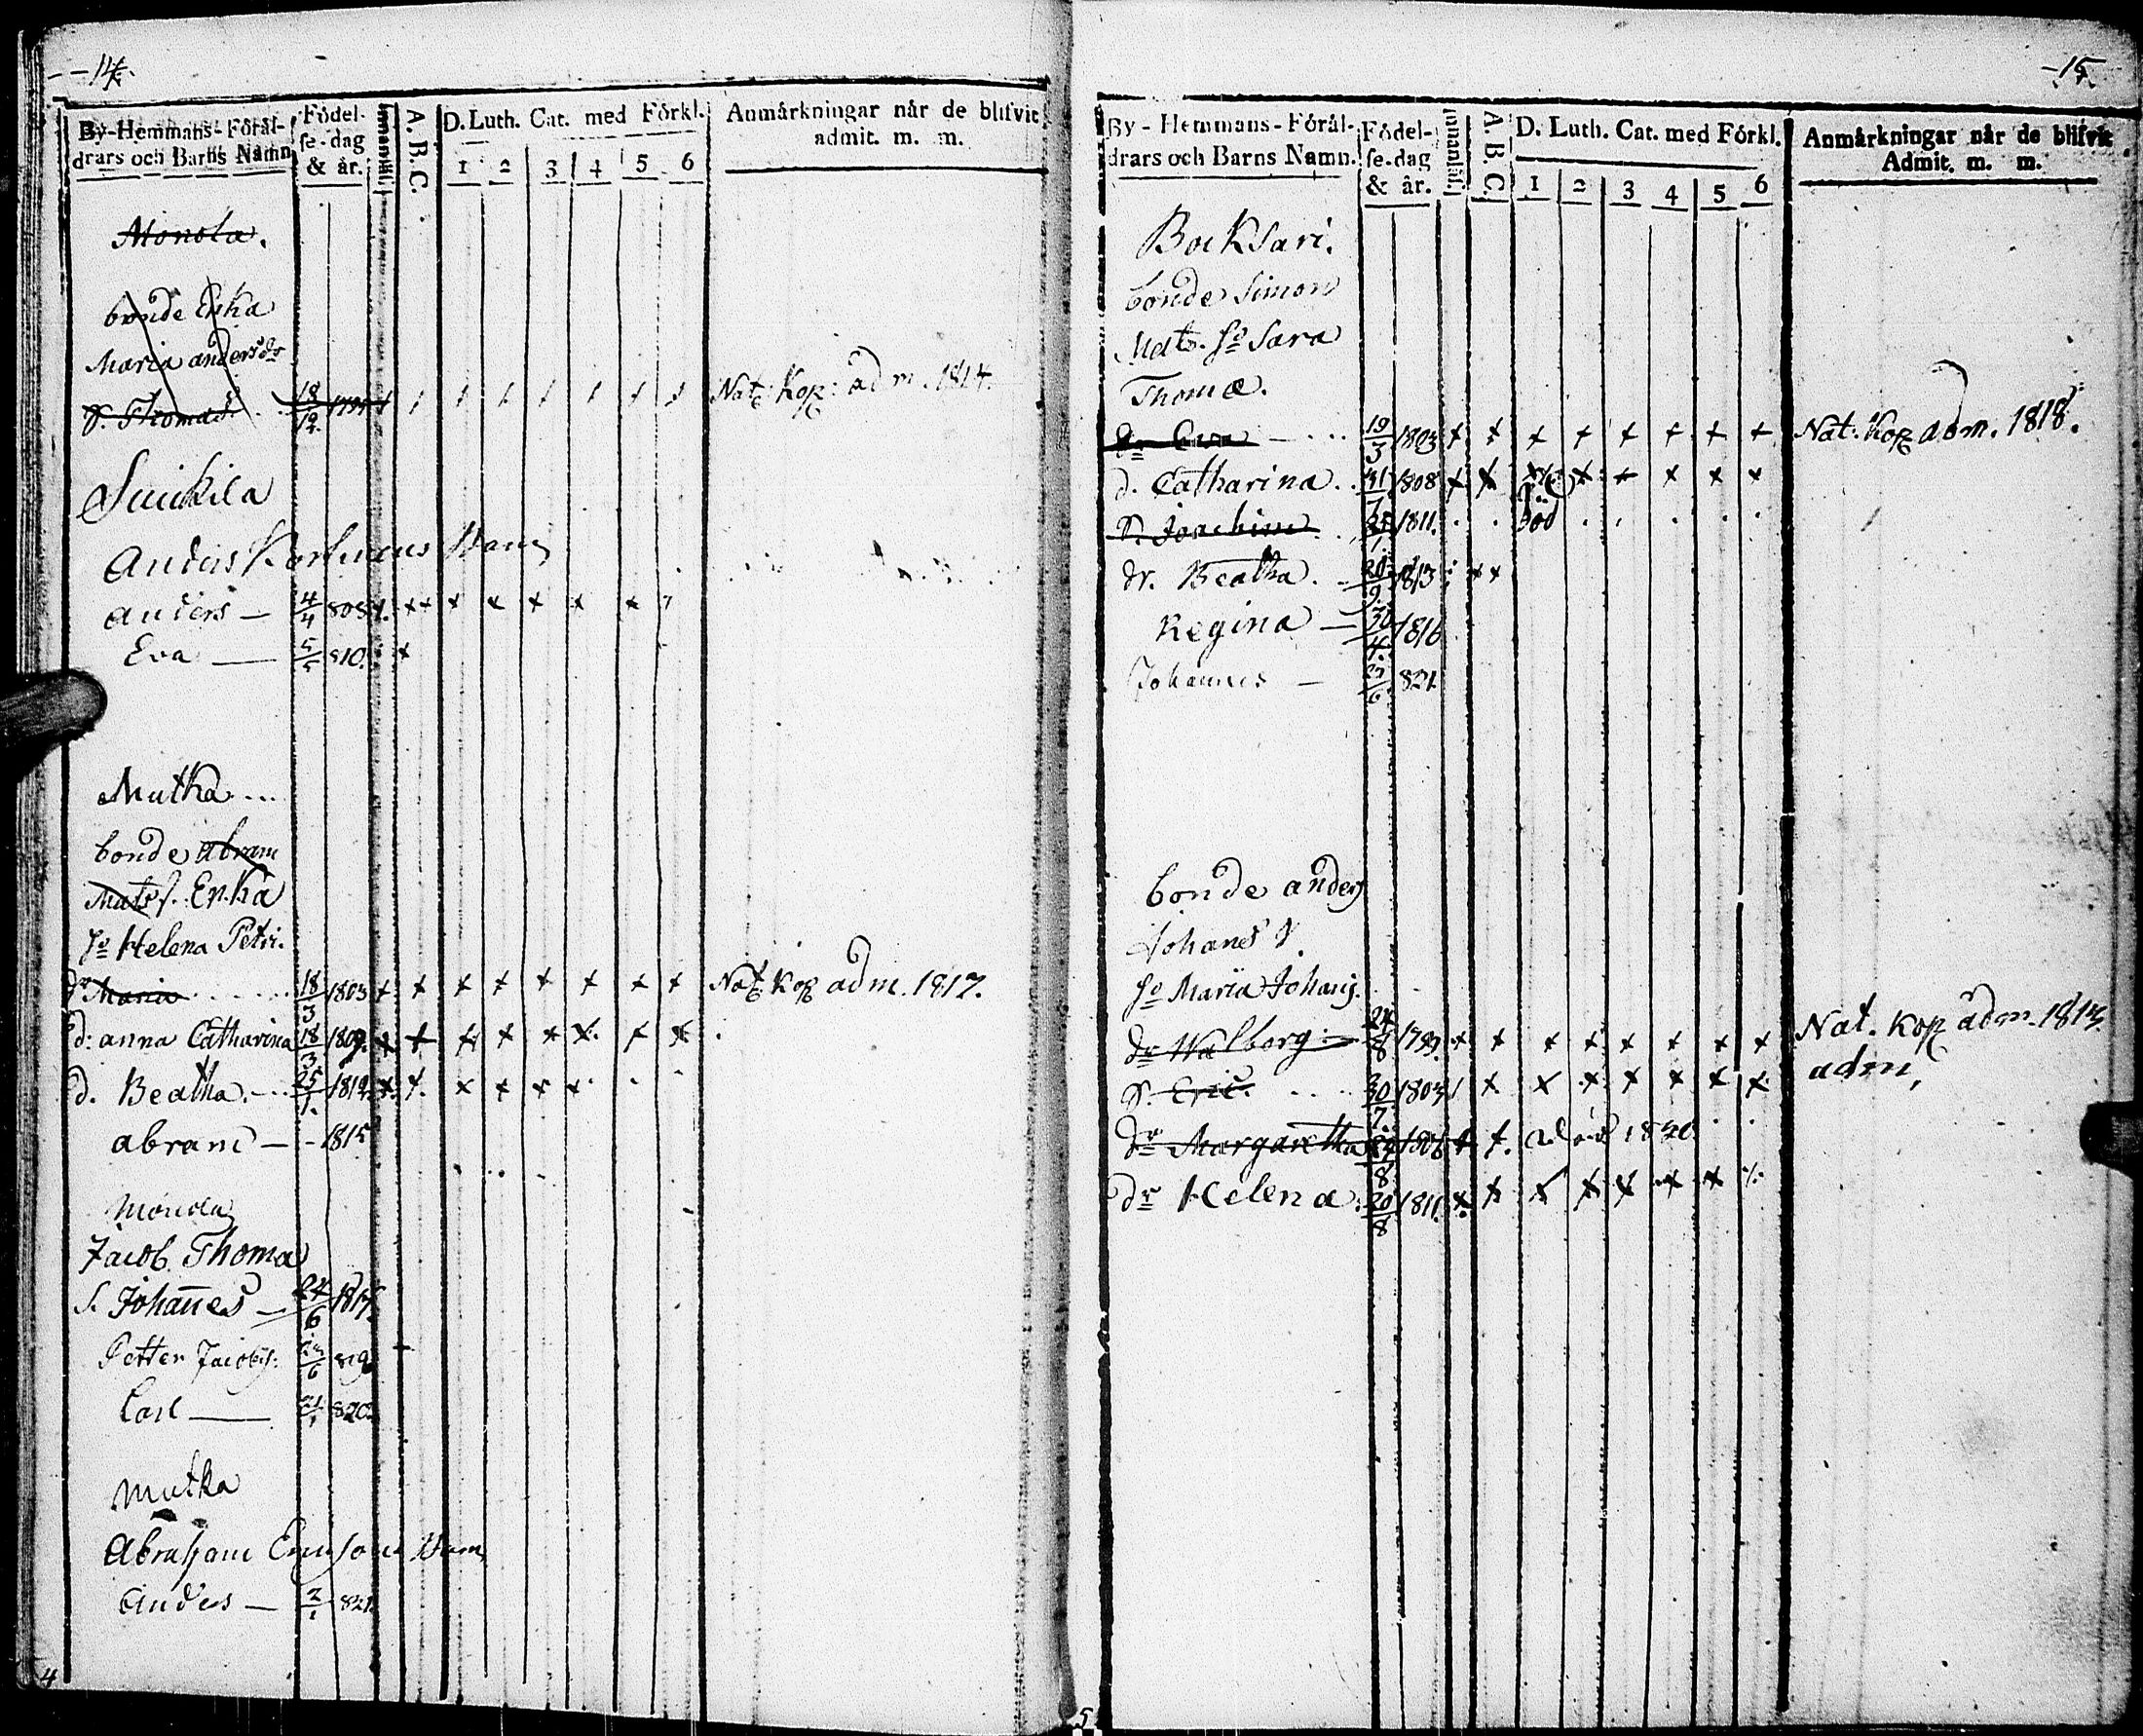 -14.
By-Hemmans-Föräl-
drars och Barns Namn
Födel-
se-dag
& år.
Innanläs.
A. B. C.
D. Luth. Cat. med Förkl.
1 2 3 4 5 6
Anmärkningar när de blifvit
admit. m. m.
Monola.
bonde Enka
Maria andersdr
S. Thomas 18/12 Nat. Kop: adm. 1814.
Suickila
Anders Barn
Anders — 4/4 808
Eva — 5/5 810.
Mutka...
bonde Abram
Mats s. Enka
Ho Helena Petri.
dr Maria 18/3 1803 Nat. Kop adm. 1817.
d: anna Catharina 18/3 1809.
d. Beatha. 25/1. 1812.
abram — 1815
Monola
Jacob Thoma
S. Johannes — 24/6 1817.
Petter Jacobs: 819
Carl — 21/1 820.
Mutka
Abraham Barn
Anders — 2/1 821.
4
-15.
By-Hemmans-Föräl-
drars och Barns Namn.
Födel-
se-dag
& år.
Innanläs.
A. B. C.
D. Luth. Cat. med Förkl.
1 2 3 4 5 6
Anmärkningar när de blifvit
Admit. m. m.
Bocksari.
bonde Simon
Mats. Ho Sara
Thomæ.
dr Eva 19/3 1803 Nat. Kop adm. 1818.
d. Catharina. 31/7 1808
S. Joachim 1811. död
dr. Beatha. 20/9 1813
Regina — 30/4. 1816
Johannes — 821.
bonde anders
Johans
Ho Maria Johans.
dr Walborg. 24/8 1799. Nat. Kop adm. 1813.
S. Eric. 30/7. 1803 adm,
dr Margaretha 1806 död 1820
dr Helena. 20/8 1811.
5